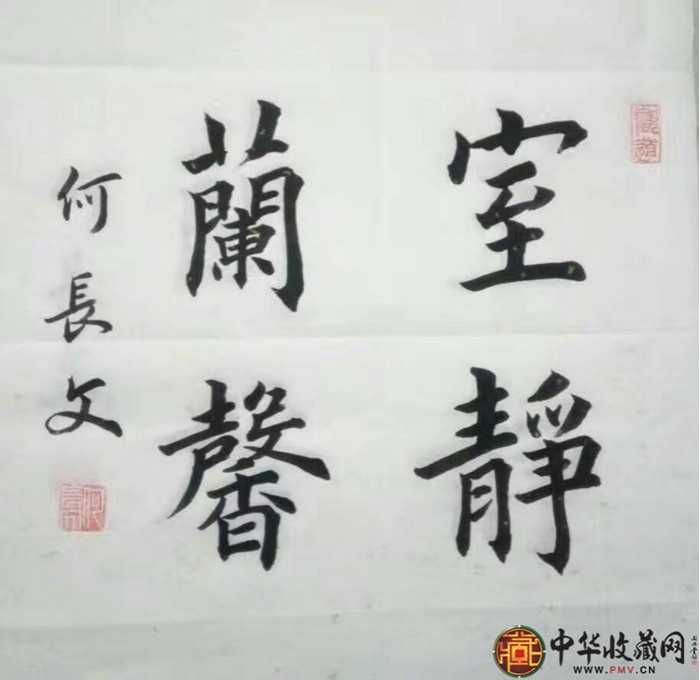 室靜
蘭馨
何長文
中华收藏网
WWW.PMV.CN